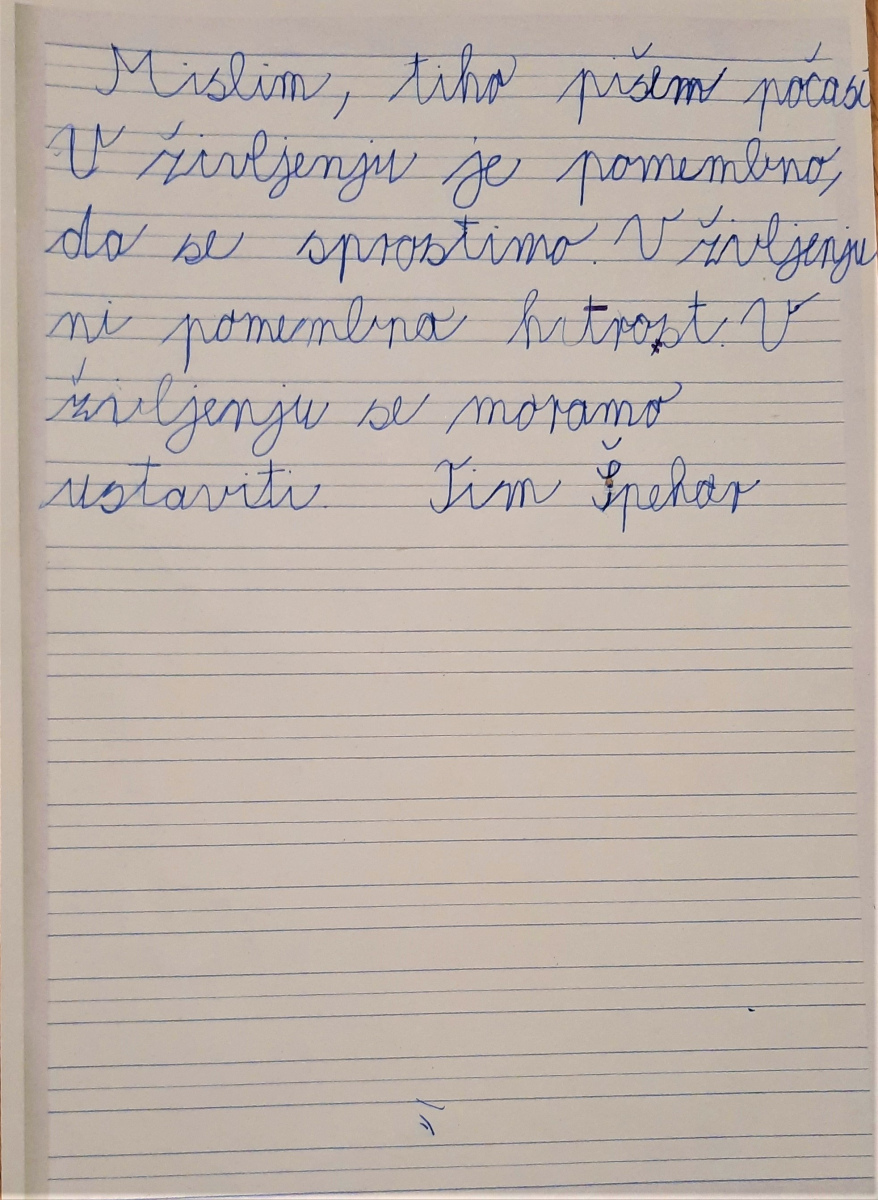 Mislim, tiho pišem počasi
V življenju je pomembno,
da se sprostimo. V življenju
ni pomembna hitrost. V
življenju se moramo
ustaviti. Tim Špehar